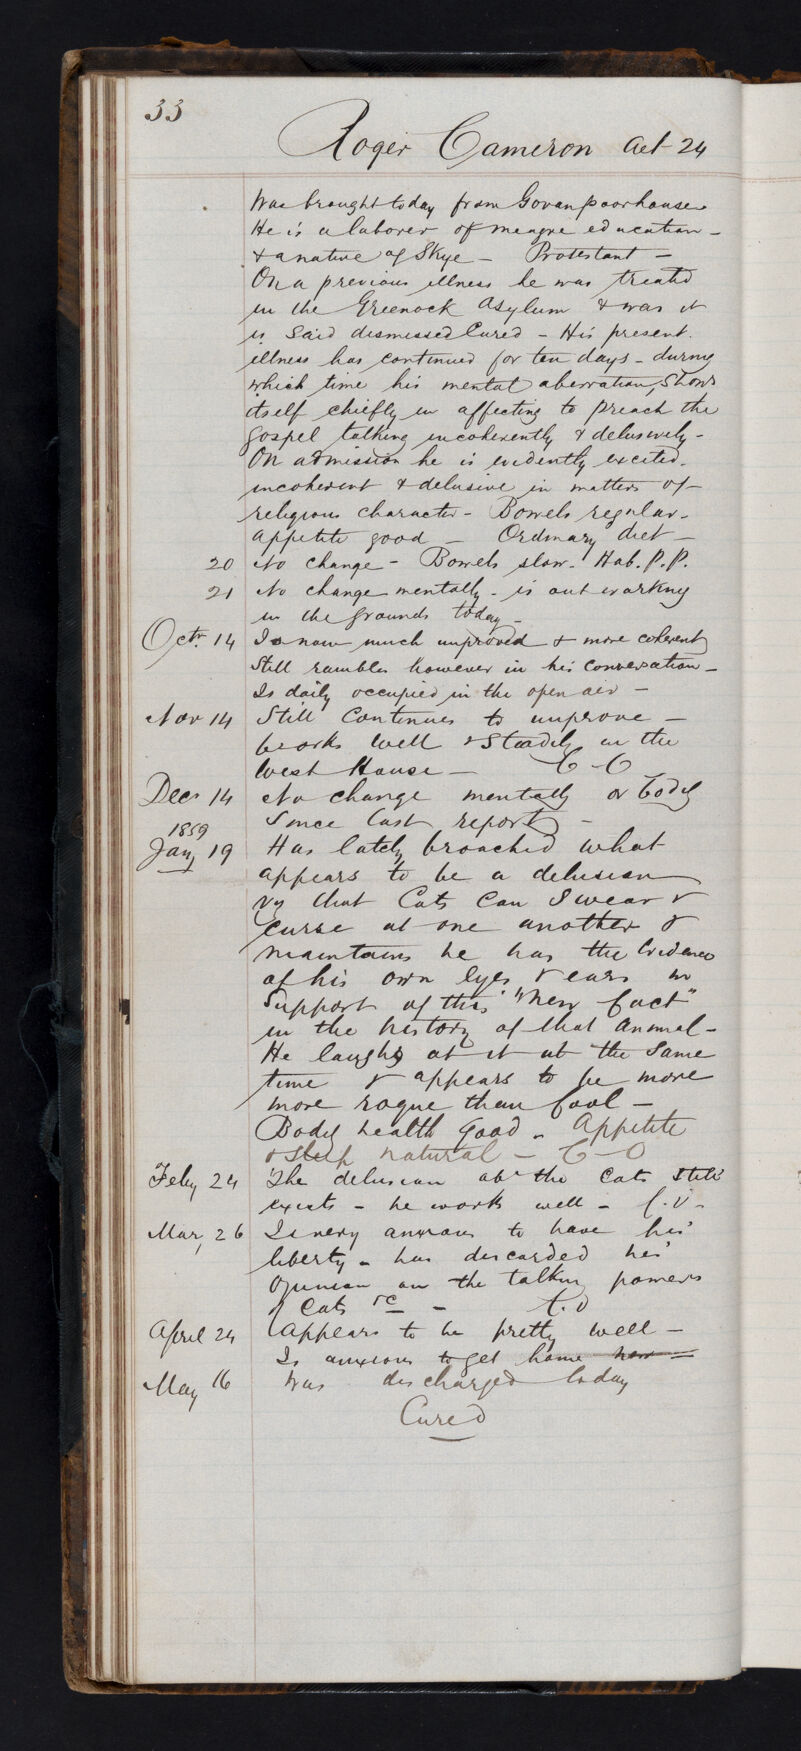 33
Roger Cameron aet 24
Was brought today from Govan poorhouse
He is a laborer of meagre education –
& a native of Skye – Protestant –
On a previous illness he was treated
in the Greenock Asylum & was it
is said dismissed Cured – His present
illness has continued for ten days – during
which time his mental aberration, shows
itself chiefly in affecting to preach the
gospel talking incoherently & delusively –
On admission he is evidently excited.
incoherent & delusive in matters of –
religious character – Bowels regular.
appetite good – Ordinary diet –
20 No change – Bowels slow. Hab. P.P.
21 No change mentally – is out working
in the grounds today –
Octr. 14 Is now much improved & more coherent
Still rambles however in his conversation –
Is daily occupied in the open air –
Nov 14 Still continues to improve –
works well & steadily in the
West House –
Decr 14 No change mentally or body
Since last report –
1859
Jany 19 Has lately broached what
appears to be a delusion
vy that Cats can Swear &
curse at one another &
maintains he has the Evidence
of his own Eyes & ears in
Support of this "New fact"
in the history of that animal –
He laughs at it at the same
time & appears to be more
more rogue than fool –
Body health good – Appetite
& sleep natural –
Feby 24 The delusion abt the Cats still
exists – he works well –
Mar, 26 Is very anxious to have his
liberty – has discarded his
opinion on the talking powers
of Cats &c –
April 24 Appears to be pretty well –
Is anxious to get home
May 16 Was discharged today
Cured